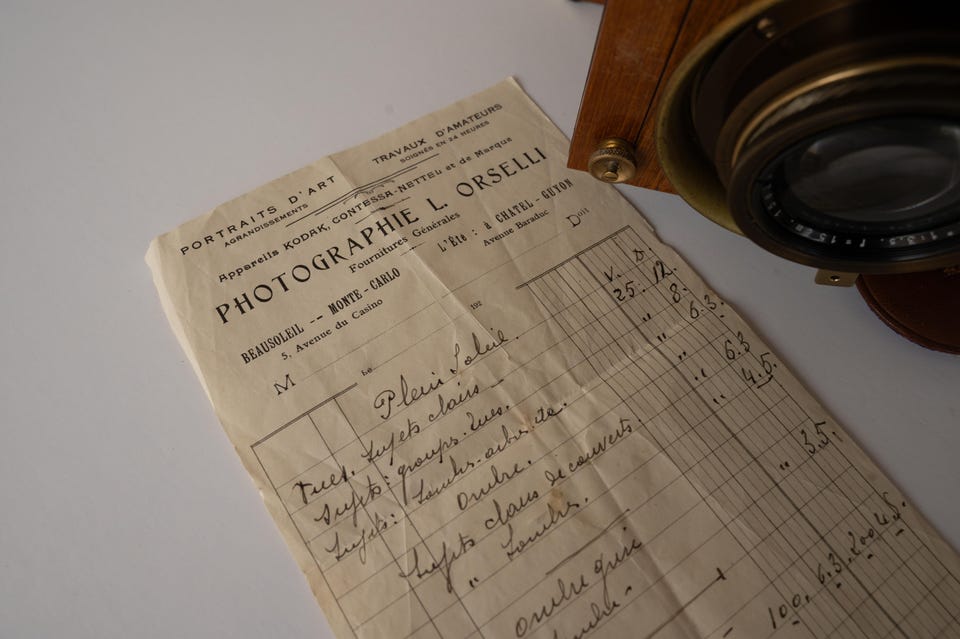 PORTRAITS D'ART
AGRANDISSEMENTS
TRAVAUX D'AMATEURS
SOIGNÉS EN 24 HEURES
Appareils KODAK, CONTESSA-NETTEL et de Marque
PHOTOGRAPHIE L. ORSELLI
Fournitures Générales
BEAUSOLEIL -- MONTE-CARLO
5, Avenue du Casino
L'Été : à CHATEL-GUYON
Avenue Baraduc
M
Doit
Le 192
Plein Soleil. V. D.
rues. Sujets clairs - 25. 12.
Sujets: groupes. rues. " 8.
Sujets: sombres. arbres etc. " 6.3.
Ombre.
Sujets clairs découverts. " 6.3
" sombres. " 4.5.
Ombre grise " 3.5.
sombre -
- 100. 6.3. 200 4.5.
f=1:3,5